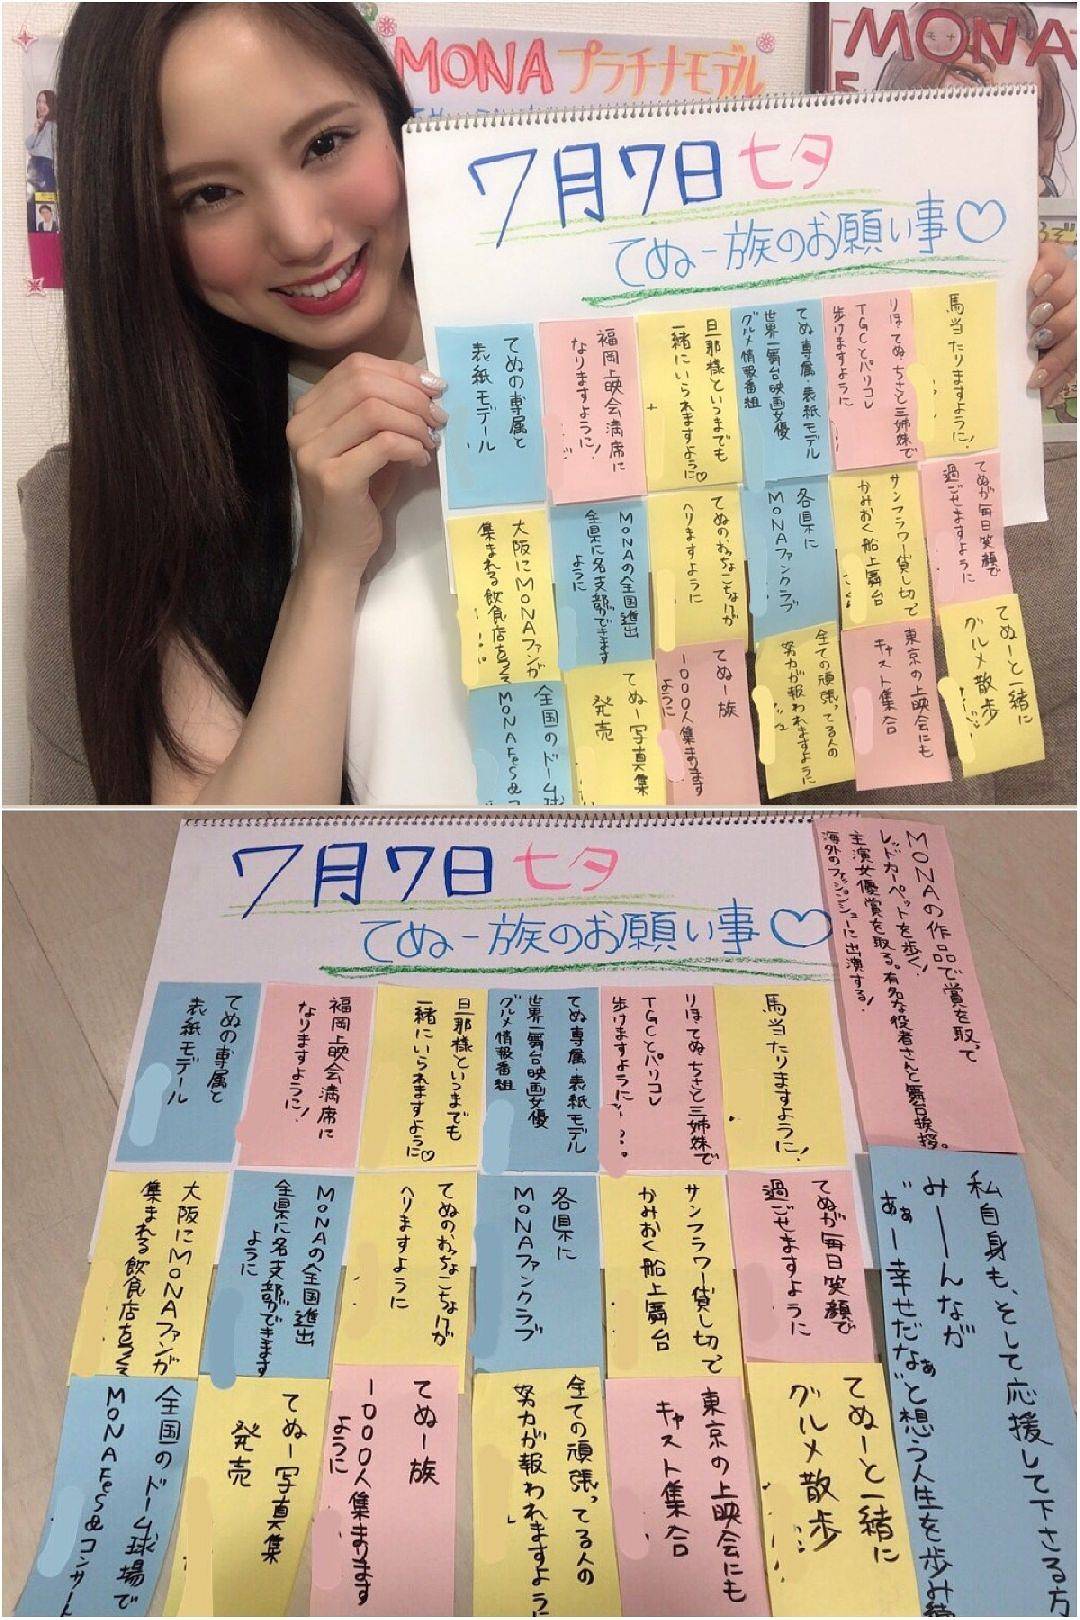 MONA プラチナモデル
MONA
7月7日 七夕
てぬー族のお願い事♡
馬当たりますように!
りほてぬちさと三姉妹で
TGCとパリコレ
歩けますように
てぬ専属・表紙モデル
世界一舞台映画女優
グルメ情報番組
旦那様といつまでも
一緒にいられますように♡
福岡上映会満席に
なりますように!
てぬの専属と
表紙モデール
てぬが毎日笑顔で
過ごせますように
サンフラワー貸し切って
かみおく船上舞台
各県に
MONAファンクラブ
てぬのおっちょこちょいが
へりますように
MONAの全国進出
全県に名支部ができます
ように
大阪にMONAファンが
集まれる飲食店をつくる
てぬーと一緒に
グルメ散歩
東京の上映会にも
キャスト集合
全ての頑張ってる人の
努力が報われますように
てぬー族
1000人集まります
ように
てぬー写真集
発売
全国のドーム球場で
MONAFes&コンサ
7月7日 七夕
てぬー族のお願い事♡
MONAの作品で賞を取って
レッドカーペットを歩く!
主演女優賞を取る。有名な役者さんと舞台挨拶。
海外のファッションショーに出演する!
馬当たりますように!
りほてぬちさと三姉妹で
TGCとパリコレ
歩けますように
てぬ専属・表紙モデル
世界一舞台映画女優
グルメ情報番組
旦那様といつまでも
一緒にいられますように♡
福岡上映会満席に
なりますように!
てぬの専属と
表紙モデール
私自身も、そして応援して下さる方
みーーんなが
"あぁー幸せだなぁ"と想う人生を歩み
てぬが毎日笑顔で
過ごせますように
サンフラワー貸し切って
かみおく船上舞台
各県に
MONAファンクラブ
てぬのおっちょこちょいが
へりますように
MONAの全国進出
全県に名支部ができます
ように
大阪にMONAファンが
集まれる飲食店をつくる
てぬーと一緒に
グルメ散歩
東京の上映会にも
キャスト集合
全ての頑張ってる人の
努力が報われますように
てぬー族
1000人集まります
ように
てぬー写真集
発売
全国のドーム球場で
MONAFes&コンサート